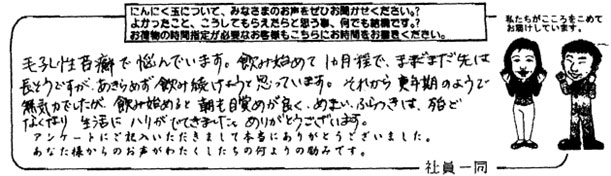 にんにく玉について、みなさまのお声をぜひお聞かせください。?
よかったこと、こうしてもらえたらと思う事、何でも結構です。?
お荷物の時間指定が必要なお客様もこちらにお時間をお書きください。
私たちがこころをこめて
お届けしています。
毛孔性苔癬で悩んでいます。飲み始めて1カ月程で、まだまだ先は
長そうですが、あきらめず飲み続けようと思っています。それから更年期のようで
無気力でしたが、飲み始めると朝も目覚めが良く、めまい、ふらつきは、殆ど
なくなり生活にハリがでてきました。ありがとうございます。
アンケートにご記入いただきまして本当にありがとうございました。
あなた様からのお声がわたくしたちの何よりの励みです。
社員一同